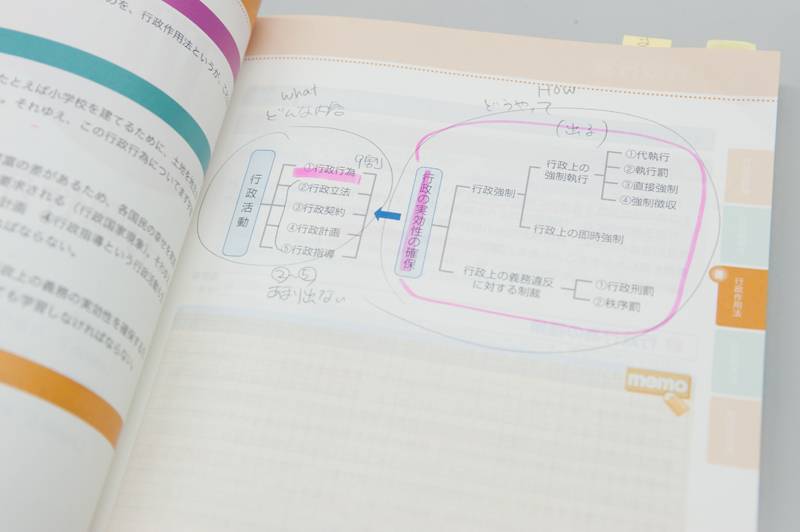 のを、行政作用法というが、こ
たとえば小学校を建てるために、土地を
。それゆえ、この行政行為について
言葉の差があるため、各国民の幸せを
要求される(行政国家現象)。その
計画 ④行政指導という行政活動
ればならない。
政上の義務の実効性を確保する
ても学習しなければならない
what
どんな内容
How
どうやって
(出る)
9割
行政活動
①行政行為
②行政立法
③行政契約
④行政計画
⑤行政指導
②~⑤
あまり出ない
行政の実効性の確保
行政強制
行政上の
強制執行
①代執行
②執行罰
③直接強制
④強制徴収
行政上の即時強制
行政上の義務違反
に対する制裁
①行政刑罰
②秩序罰
行政作用法
memo